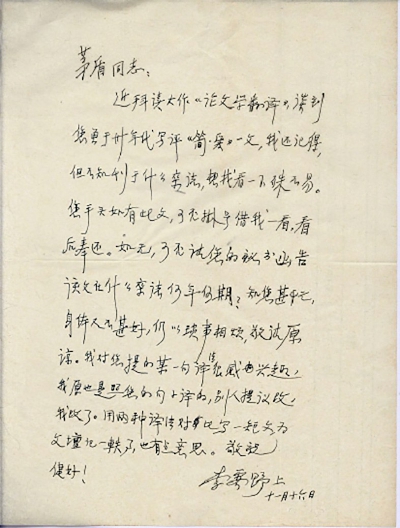 茅盾同志:
近拜读大作《论文学翻译》,谈到
您曾于卅年代写评《简·爱》一文,我还记得,
但不知刊于什么杂志,想找看一下殊不易。
您手头如有此文,可否掷予借我一看,看
后奉还。如无,可否请您的秘书函告
该文在什么杂志何年何期?知您甚忙,
身体又不甚好,仍以琐事相烦,敬请原
谅。我对您提的某一句译法很感兴趣,
我原也是照您的句子译的,别人提议改,
我改了。用两种译法对比写一短文为
文坛记一轶事,也有点意思。敬祝
健好!
李霁野上
十一月十六日